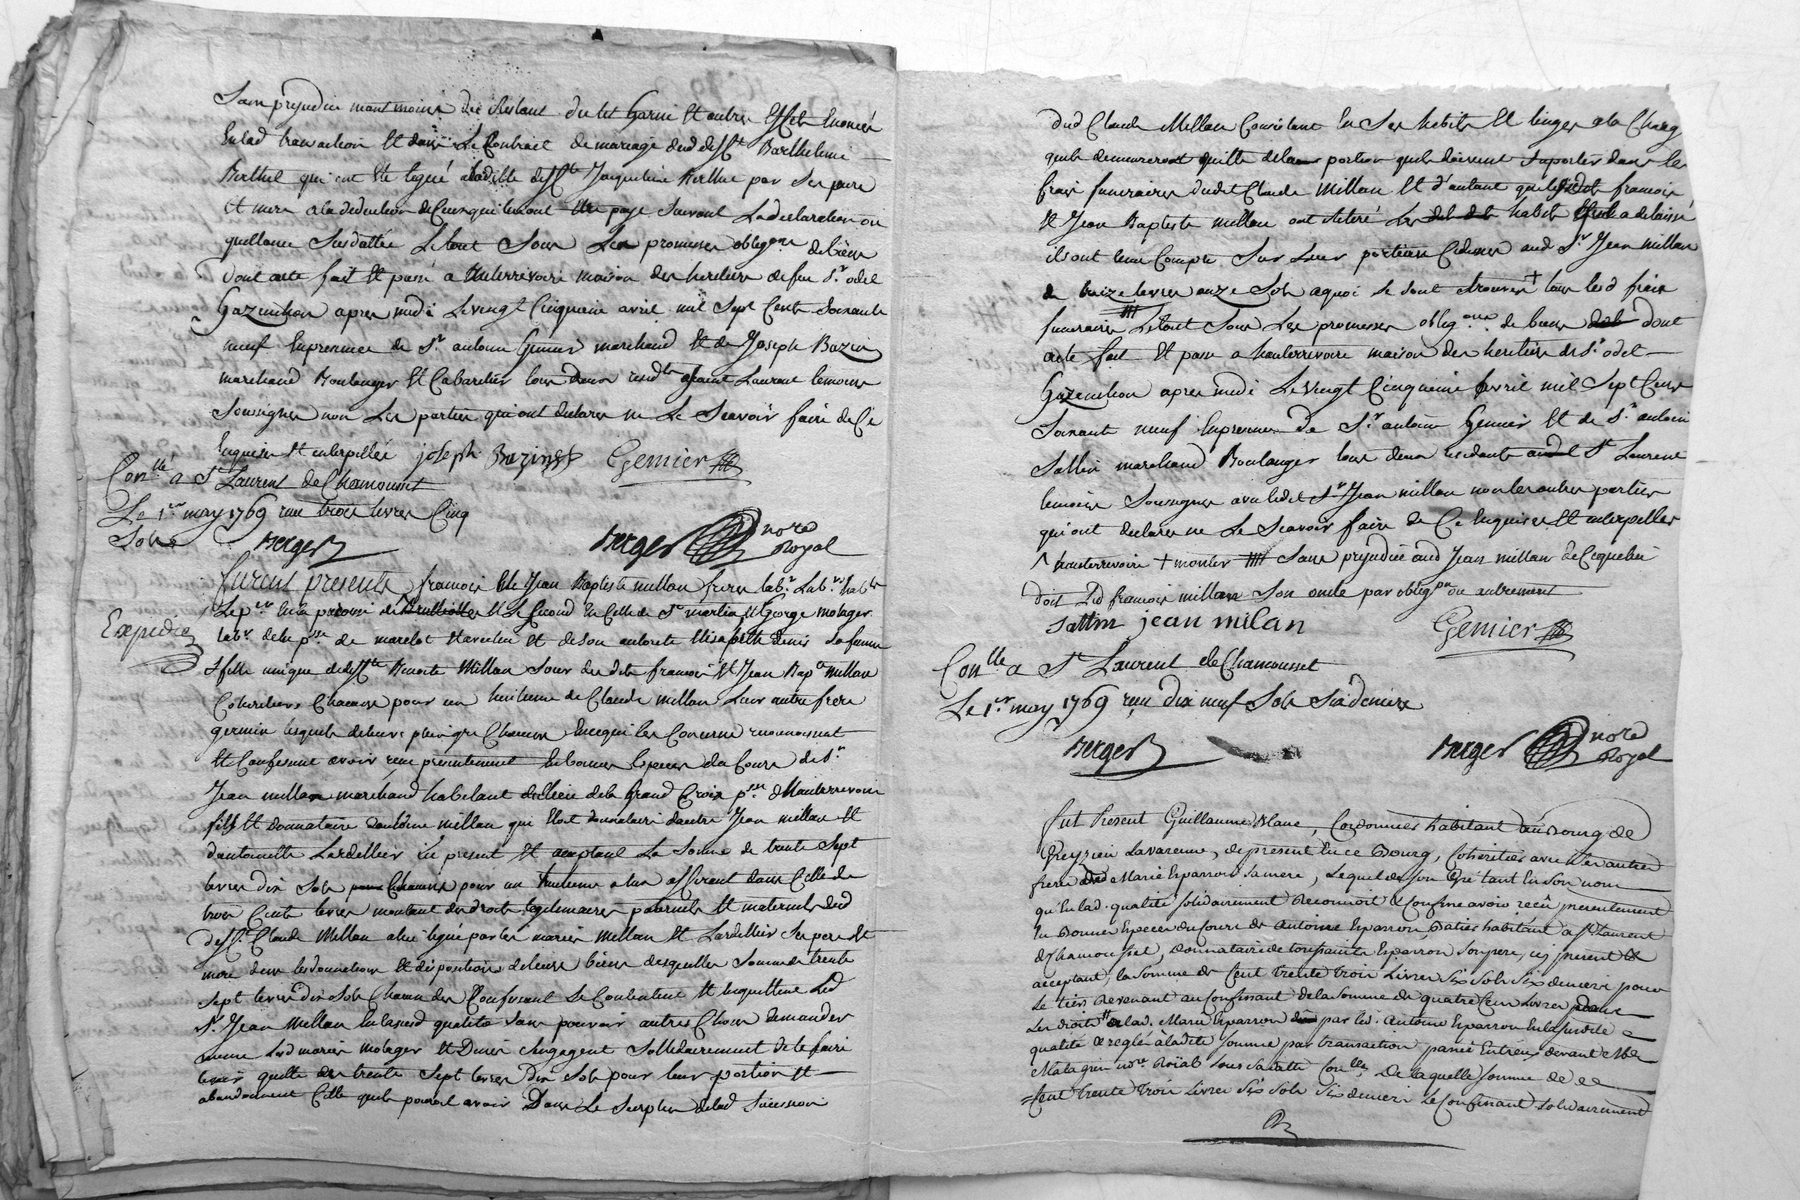 Sans prejudice neant moins du restant du lit Garni et autres effets Enoncés
En lad transaction et dans Le Contrait de mariage dud deff.t Barthelemi
Berthel qui ont été legué a ladite deff.te Jacqueline Berthel par ses pere
et mere a la deduction de Ceux qui luy ont été payé suivant La declaration ou
quittance susdattée Le tout Sous Les promesses oblig.ons de biens
Dont acte fait et passé a hauterrivoire maison des heritiers de feu S.r odet
Gazanchon apres midi Le vingt Cinquieme avril mil sept Cents soixante
neuf En presence de S.r antoine Gemier marchand et de Joseph Bazin
marchand Boulanger et Cabaretier tous deux resid.ts a Saint Laurent temoins
soussignes non Les parties qui ont declarés ne Le Scavoir faire de Ce
Enquises et interpellés joseph Bazin Gemier
Con.llé a S.t Laurent de Chamousset
Le 1.er may 1769 reçu trois livres Cinq
Sols Berger Berger no.re Royal
furent presents françois et Jean Baptiste millan freres lab.r Lab.rs hab.ts
Le p.er en la paroisse de Brullioles et Le second en Celle de S.t martin et George molager
Expedié
lab.r de la p.sse de marelot et avelin et de son autorité Elisabeth Denis sa femme
fille unique de deff.te Benoite Millan soeur des dits françois et Jean Bap.te millan
Coheritiers Chacuns pour un huitieme de Claude millan Leur autre frere
germain lesquels de leurs plein gre Chacun En ce qui Les Concerne reconnoissent
et Confessent avoir reçu presentement En bonnes Especes du Cours de S.r
Jean millan marchand habitant du lieu de la Grand Croix p.sse d'hauterrivoire
fils et donnataire d'antoine millan qui Etoit donnataire d'autre Jean millan et
d'antoinette Lardellier icy present et acceptant La somme de trente sept
livres dix sols pour Chacuns pour un huitieme a luy afferant dans Celle de
trois Cents livres montant des droits legitimaires paternels et maternels dud
deff.t Claude Millan a luy legué par les mariés Millan et Lardellier ses pere et
mere dans les donnations et dispositions de leurs biens desquelles sommes de trente
sept livres dix sols Chacun des Confessant se Contentent et En quittent Led
S.r Jean Millan En lad qualité sans pouvoir autres Choses demander
meme Les d mariés molager et Denis s'engagent sollidairement de le faire
tenir quitte des trente sept livres dix sols pour leur portion et
abandonnent Celle quils pouroit avoir Dans Le surplus de lad succession
dud Claude Millan Consistant En Ses habits et linges a la Charge
quils demeureront quitte de leur portion quils doivent suporter dans les
frais funeraires dudit Claude Millan et d'autant que lesdits françois
et Jean Baptiste millan ont retiré Les habits quil a delaissé
ils ont tenu Compte Sur Leur portions Cidessus aud S.r Jean millan
de treize livres onze sols a quoi se sont trouves + tous lesd frais
funeraires Le tout Sous Les promesses oblig.ons de biens dont
acte fait et passé a hauterrivoire maison des heritiers de S.r odet
Gazanchon apres midi Le vingt Cinquieme avril mil sept Cents
soixante neuf En presence de S.r antoine Gemier et de S.r antoine
Sattin marchand Boulanger tous deux residents a S.t Laurent
temoins Soussignes avec ledit S.r Jean millan non les autres parties
qui ont declarés ne Le Scavoir faire de Ce Enquises et interpellés
^ hauterrivoire + montés sans prejudice aud Jean millan de Ce que luy
doit Led françois millan son oncle par oblig.on ou autrement
Sattin jean milan Gemier
Con.llé a S.t Laurent de Chamousset
Le 1.er may 1769 reçu dix neuf sols six deniers
Berger Berger no.re Royal
fut Present Guillaume Blanc, Cordonnier habitant au Bourg de
Grezieu Lavarenne, de present En ce Bourg, Coheritier avec ses autres
freres dud Marie Esparron sa mere, Lequel de son Gré tant En son nom
qu'En lad. qualité solidairement Reconnoit et Confesse avoir reçû presentement
En Bonnes Especes du Cours de Antoine Esparron, Patier habitant a S.t Laurent
de Chamousset, donnataire de toussaints Esparron son pere, icy present et
acceptant, la somme de Cent trente trois Livres Six Sols Six deniers pour
Le tiers Revenant au Confessant de la somme de quatre Cent Livres
Les droits de lad. Marie Esparron par led. Antoine Esparron En la susdite
qualité et reglé a ladite somme par transaction passée Entreux devant M.e
Matagrin no.re Roïal sous sa datte Con.llée, De laquelle somme de
Cent trente trois Livres Six Sols Six deniers Le Confessant solidairement